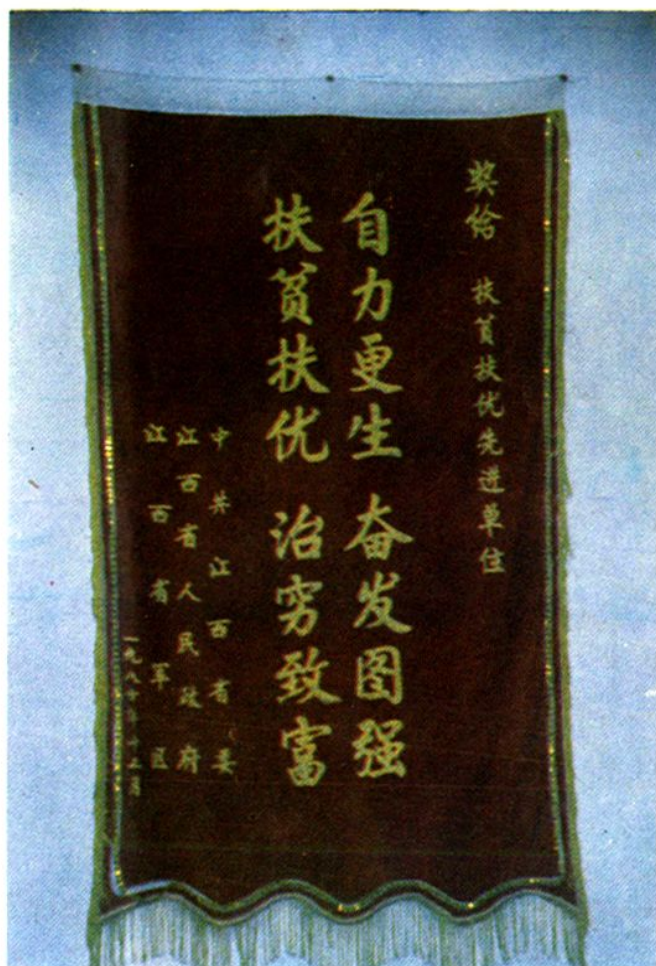 奖给 扶贫扶优先进单位
自力更生 奋发图强
扶贫扶优 治穷致富
中共江西省委
江西省人民政府
江西省军区